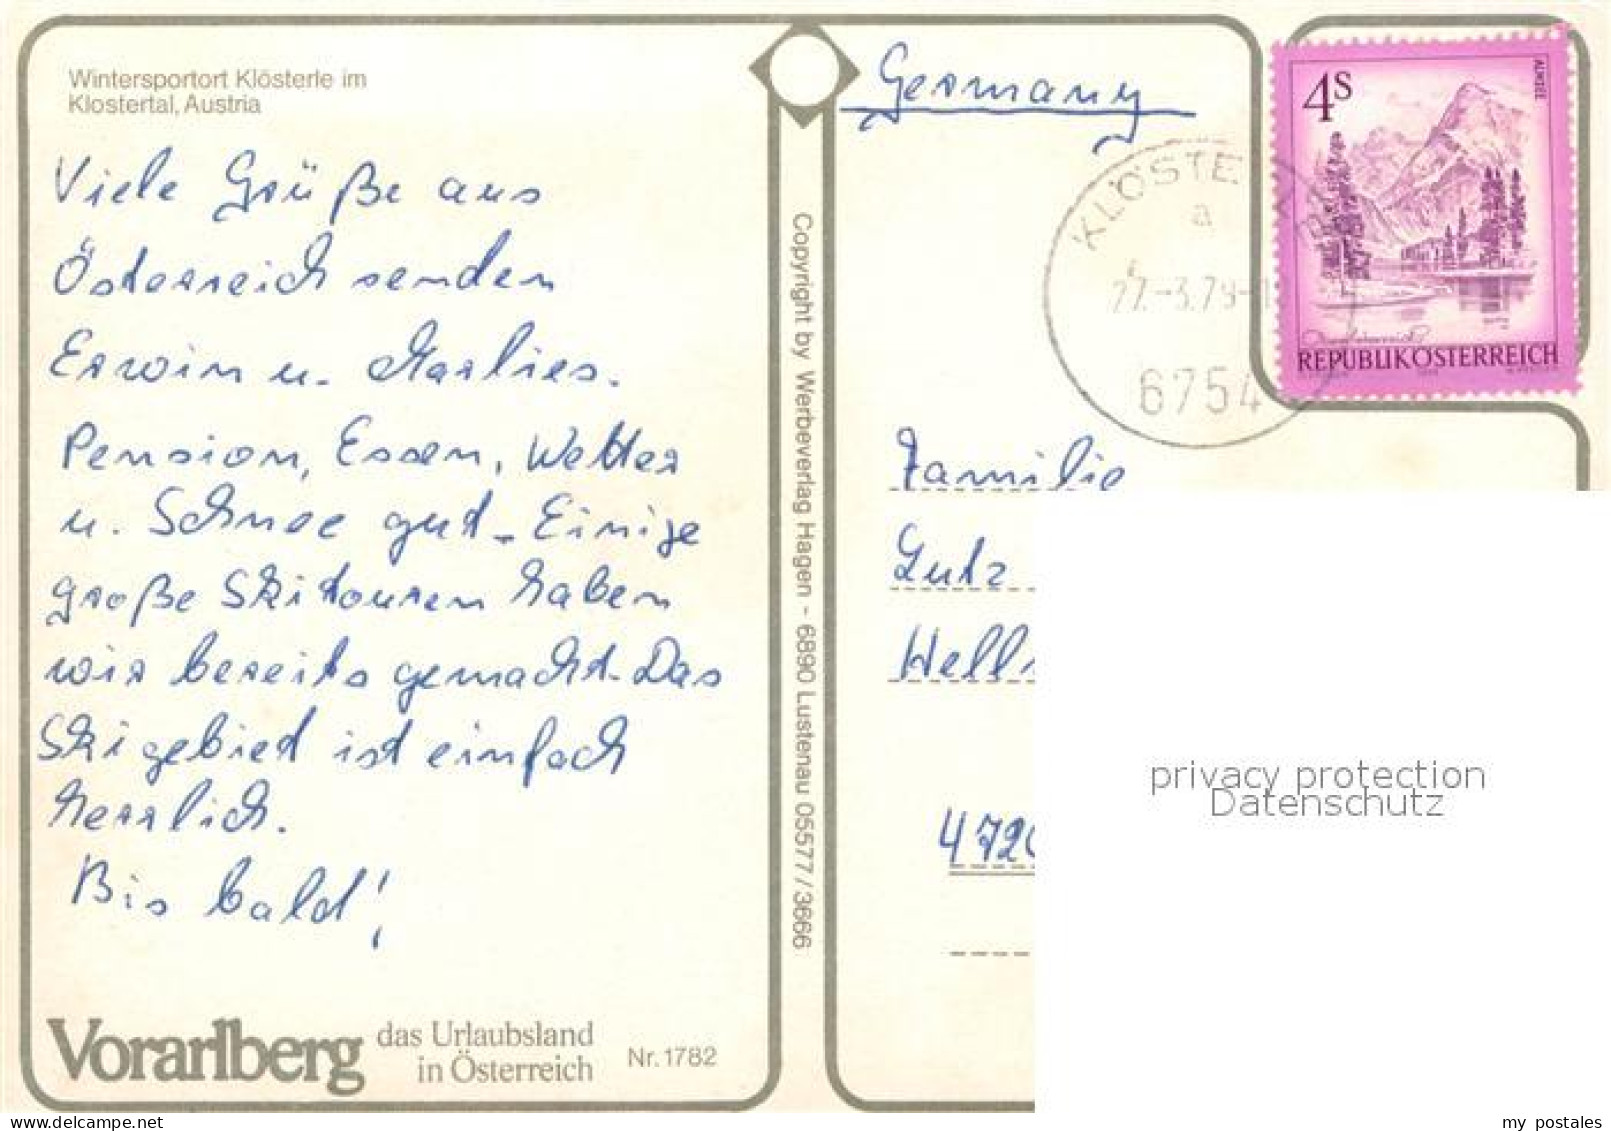 Wintersportort Klösterle im
Klostertal, Austria
Viele Grüße aus
Österreich senden
Erwin u. Marlies.
Pension, Essen, Wetter
u. Schnee gut. Einige
große Skitouren haben
wir bereits gemacht. Das
Skigebiet ist einfach
herrlich.
Bis bald!
Vorarlberg
das Urlaubsland
in Österreich
Nr. 1782
Copyright by Werbeverlag Hagen - 6890 Lustenau 05577/3666
Germany
4S
ALMSEE
REPUBLIK ÖSTERREICH
KLÖSTE
a
27.-3.79-1
6754
Familie
Lutz
472
privacy protection
Datenschutz
my_postales